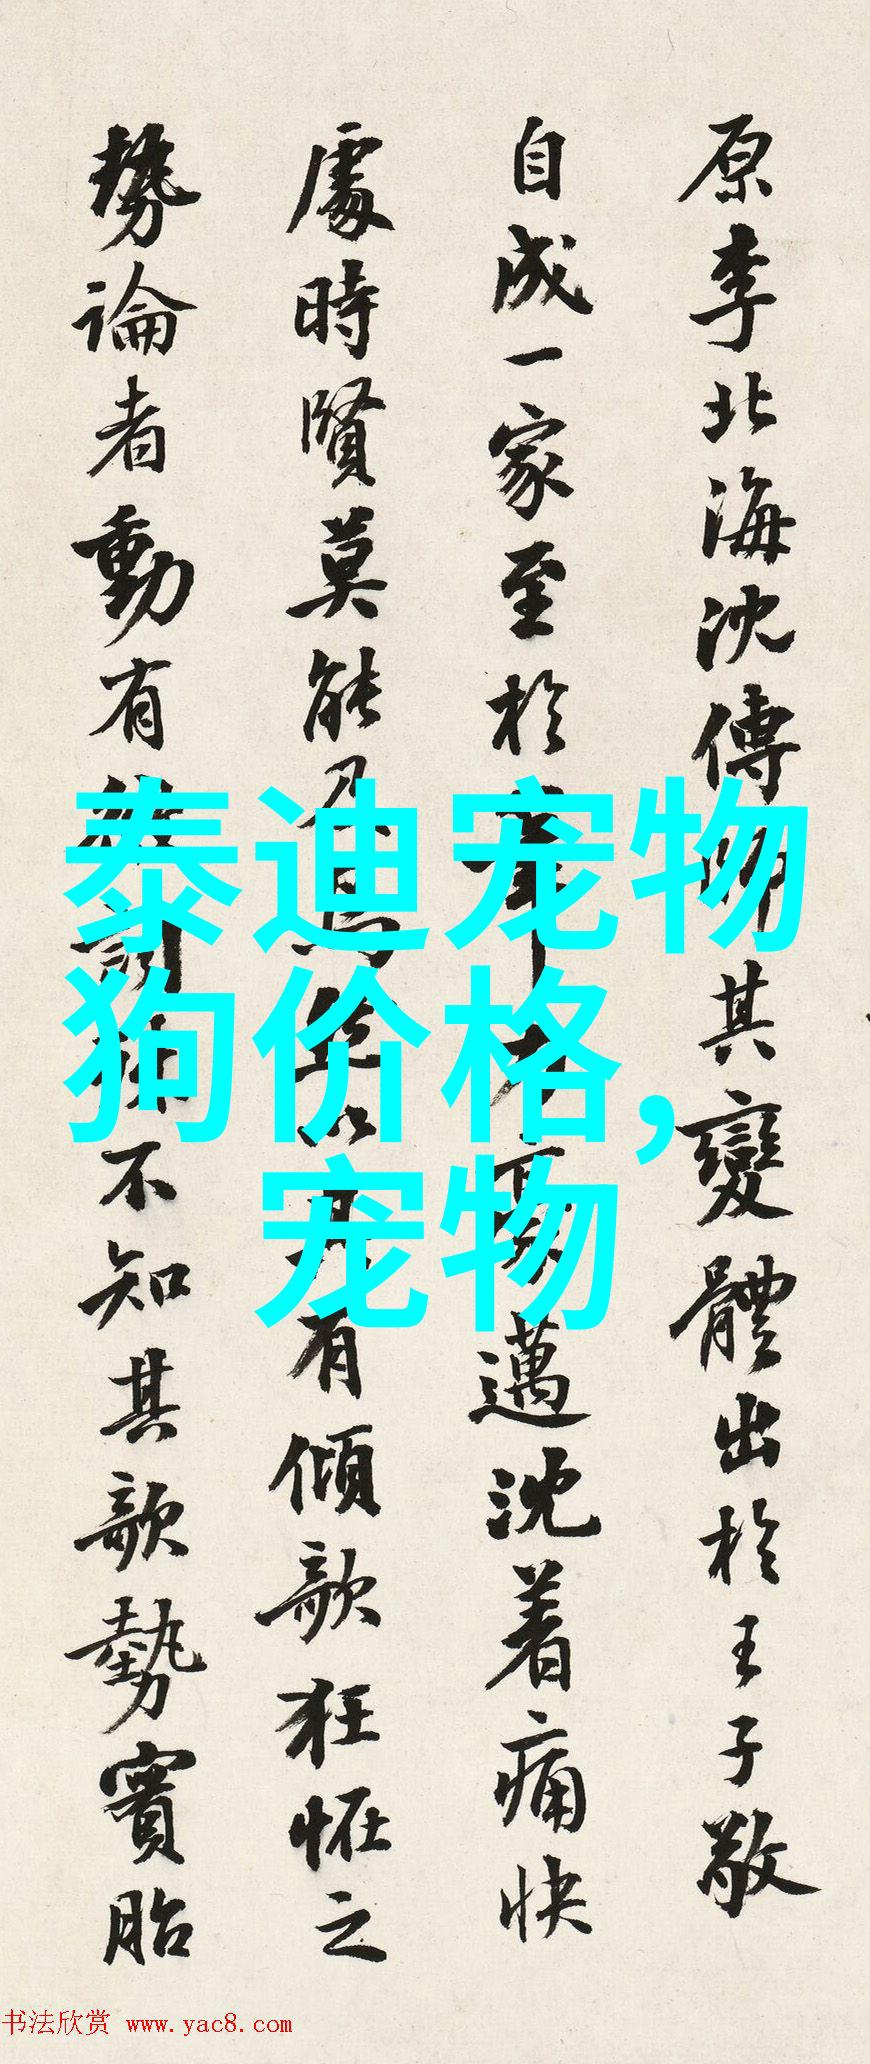 原李北海沈傳師其變體出於王子敬
自成一家至於豪邁沈着痛快
處時賢莫能有傾欹狂怪之
勢論者動有不知其欹勢實胎
泰迪宠物
狗价格,
宠物
书法欣赏 www.yac8.com